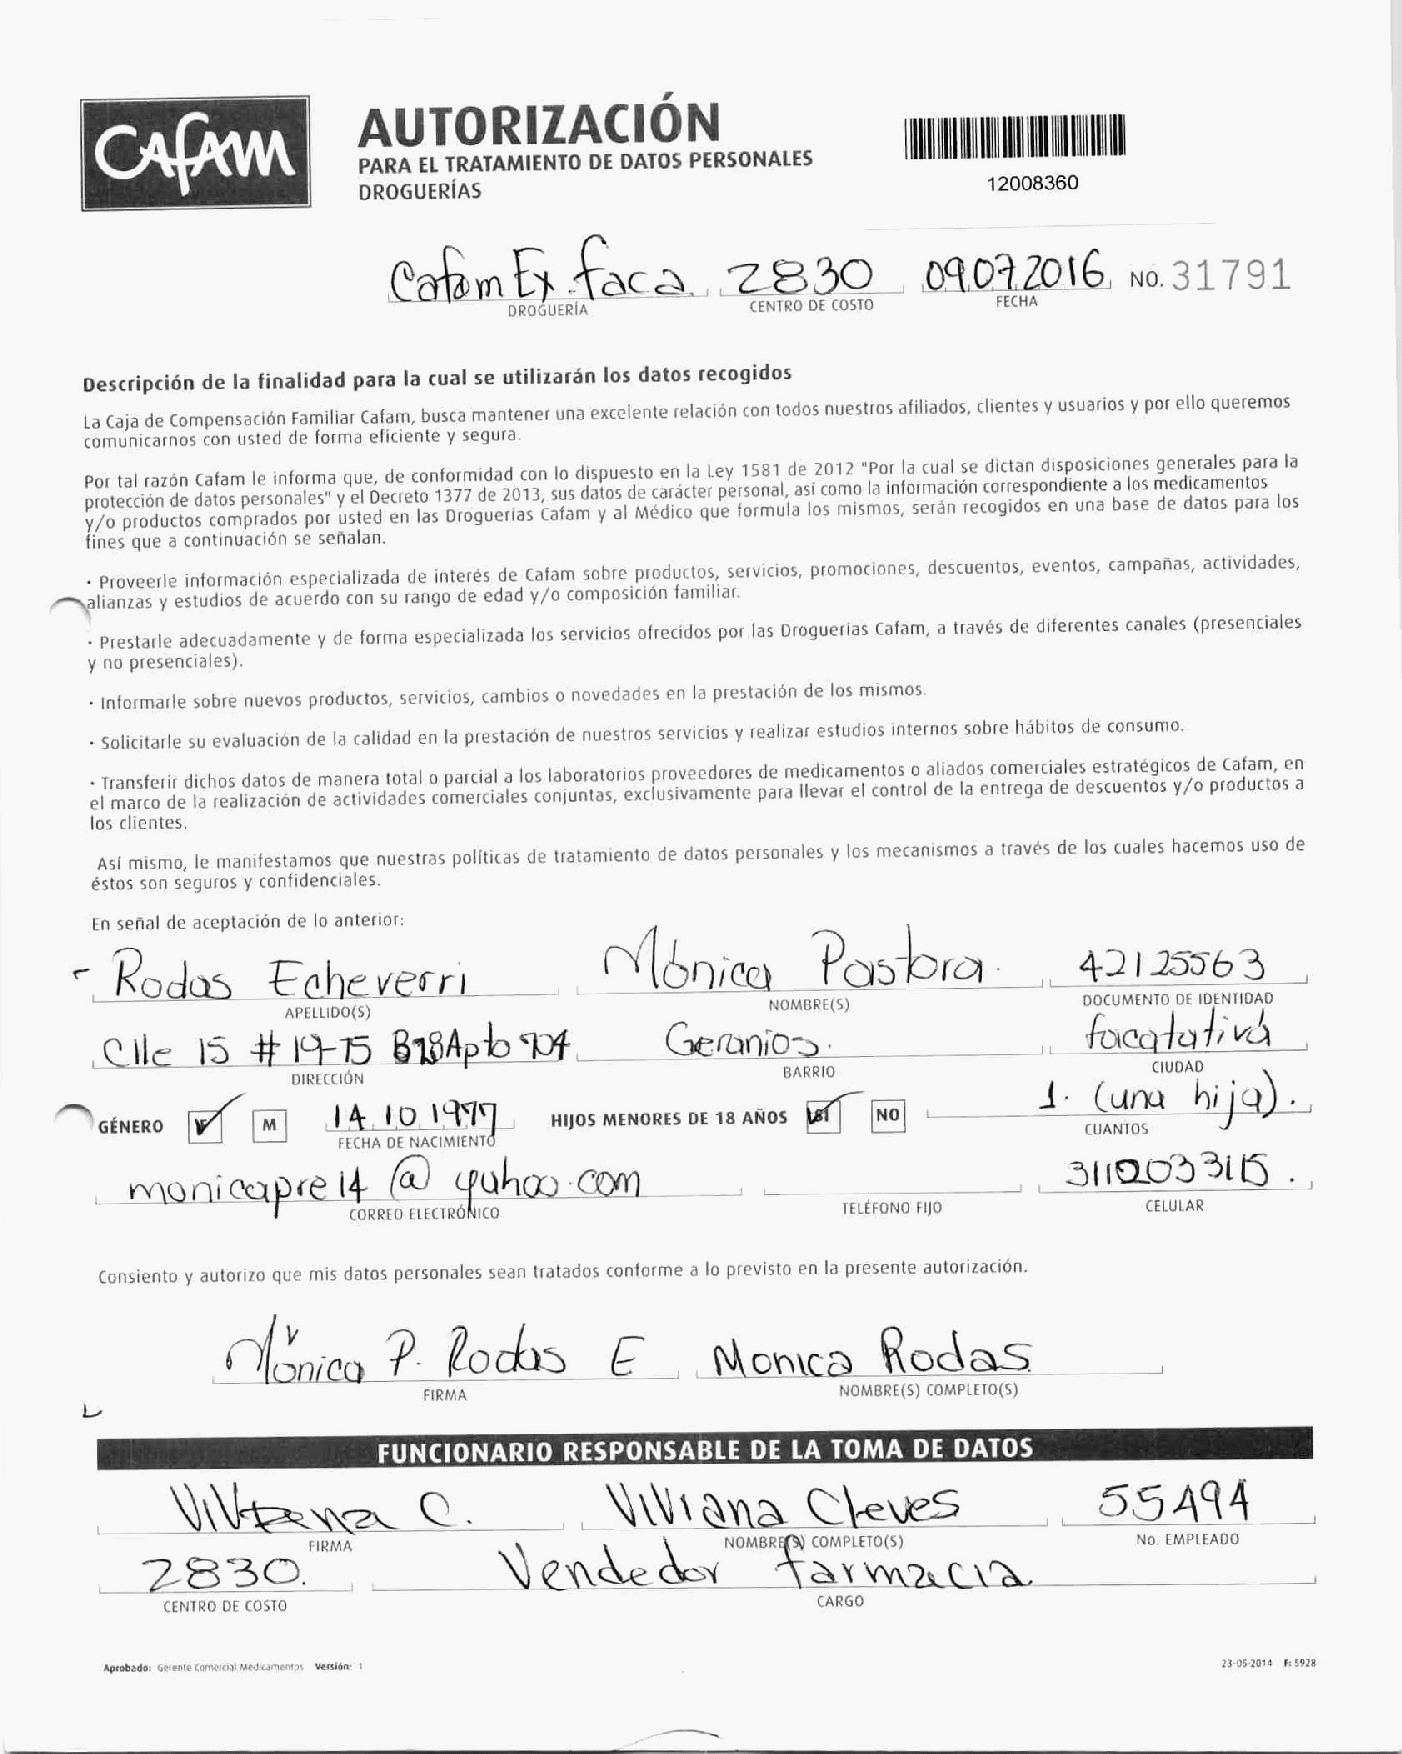 CAFAM
AUTORIZACIÓN
PARA EL TRATAMIENTO DE DATOS PERSONALES
DROGUERÍAS
12008360
Cafam Ex faca 2830 09.07.2016 NO. 31791
DROGUERÍA CENTRO DE COSTO FECHA
Descripción de la finalidad para la cual se utilizarán los datos recogidos
La Caja de Compensación Familiar Cafam, busca mantener una excelente relación con todos nuestros afiliados, clientes y usuarios y por ello queremos
comunicarnos con usted de forma eficiente y segura.
Por tal razón Cafam le informa que, de conformidad con lo dispuesto en la Ley 1581 de 2012 "Por la cual se dictan disposiciones generales para la
protección de datos personales" y el Decreto 1377 de 2013, sus datos de carácter personal, así como la información correspondiente a los medicamentos
y/o productos comprados por usted en las Droguerías Cafam y al Médico que formula los mismos, serán recogidos en una base de datos para los
fines que a continuación se señalan.
· Proveerle información especializada de interés de Cafam sobre productos, servicios, promociones, descuentos, eventos, campañas, actividades,
alianzas y estudios de acuerdo con su rango de edad y/o composición familiar.
· Prestarle adecuadamente y de forma especializada los servicios ofrecidos por las Droguerías Cafam, a través de diferentes canales (presenciales
y no presenciales).
· Informarle sobre nuevos productos, servicios, cambios o novedades en la prestación de los mismos.
· Solicitarle su evaluación de la calidad en la prestación de nuestros servicios y realizar estudios internos sobre hábitos de consumo.
· Transferir dichos datos de manera total o parcial a los laboratorios proveedores de medicamentos o aliados comerciales estratégicos de Cafam, en
el marco de la realización de actividades comerciales conjuntas, exclusivamente para llevar el control de la entrega de descuentos y/o productos a
los clientes.
Así mismo, le manifestamos que nuestras políticas de tratamiento de datos personales y los mecanismos a través de los cuales hacemos uso de
éstos son seguros y confidenciales.
En señal de aceptación de lo anterior:
- Rodas Echeverri Mónica Pastora. 42125563
APELLIDO(S) NOMBRE(S) DOCUMENTO DE IDENTIDAD
Clle 15 # 19-75 Apto 704 Geranios. facatativá
DIRECCIÓN BARRIO CIUDAD
GÉNERO M 14.10.1977 HIJOS MENORES DE 18 AÑOS SI NO 1. (una hija).
FECHA DE NACIMIENTO CUANTOS
monicapre14@yahoo.com 3112033115.
CORREO ELECTRÓNICO TELÉFONO FIJO CELULAR
Consiento y autorizo que mis datos personales sean tratados conforme a lo previsto en la presente autorización.
Mónica P. Rodas E Monica Rodas
FIRMA NOMBRE(S) COMPLETO(S)
FUNCIONARIO RESPONSABLE DE LA TOMA DE DATOS
Viviana C. Viviana Cleves 55494
FIRMA NOMBRE(S) COMPLETO(S) No. EMPLEADO
2830. Vendedor farmacia.
CENTRO DE COSTO CARGO
Aprobado: Gerente Comercial Medicamentos Versión: 1 23-05-2014 F: 5928